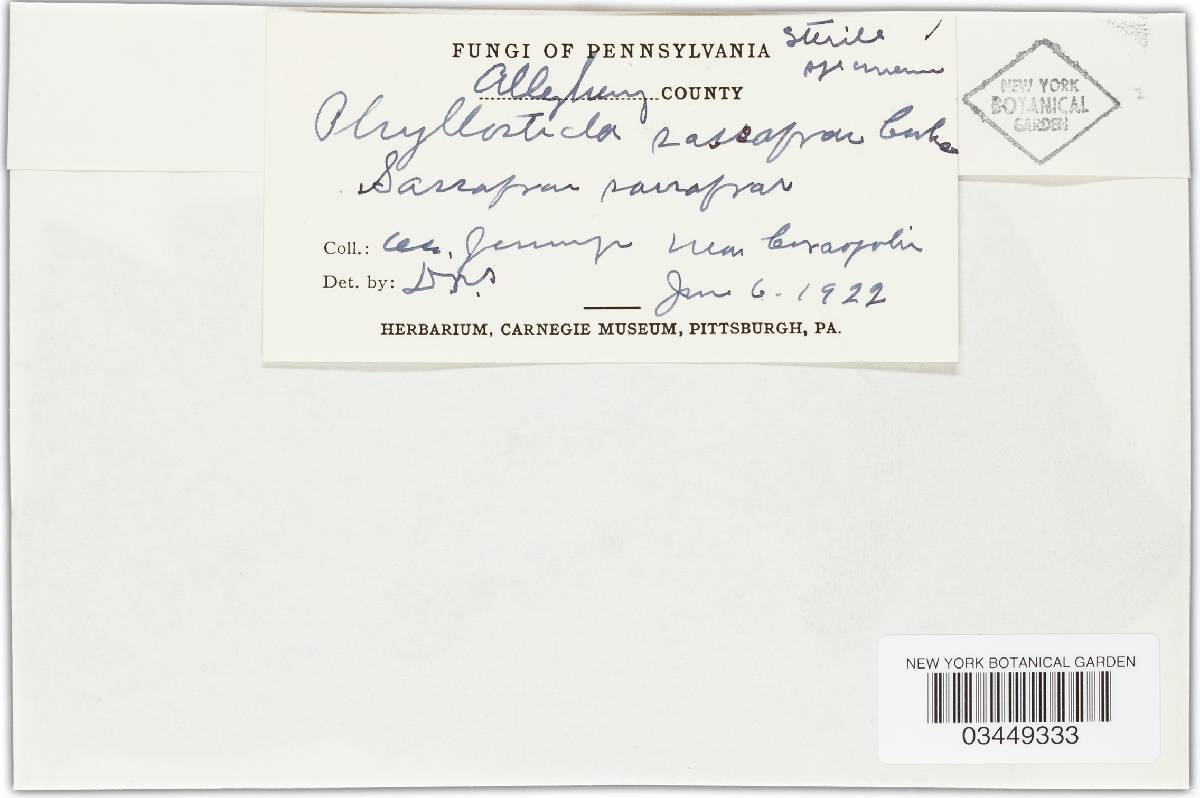 FUNGI OF PENNSYLVANIA
Sterile
specimen
Allegheny COUNTY
Phyllosticta sassafras Cooke
Sassafras sassafras
Coll.: Jennings near Coraopolis
Det. by:
June 6. 1922
HERBARIUM, CARNEGIE MUSEUM, PITTSBURGH, PA.
NEW YORK
BOTANICAL
GARDEN
NEW YORK BOTANICAL GARDEN
03449333